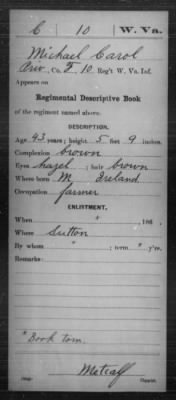 C 10 W. Va.
Michael Carol
Co. F 10 Reg't W. Va. Inf.
Appears on
Regimental Descriptive Book
of the regiment named above.
DESCRIPTION.
Age 43 years; height 5 feet 9 inches.
Complexion brown
Eyes hazel; hair brown
Where born Ireland
Occupation farmer
ENLISTMENT.
When * , 186 .
Where Sutton
By whom * ; term * y'rs.
Remarks:
* Book torn.
Metcalf
Copyist.